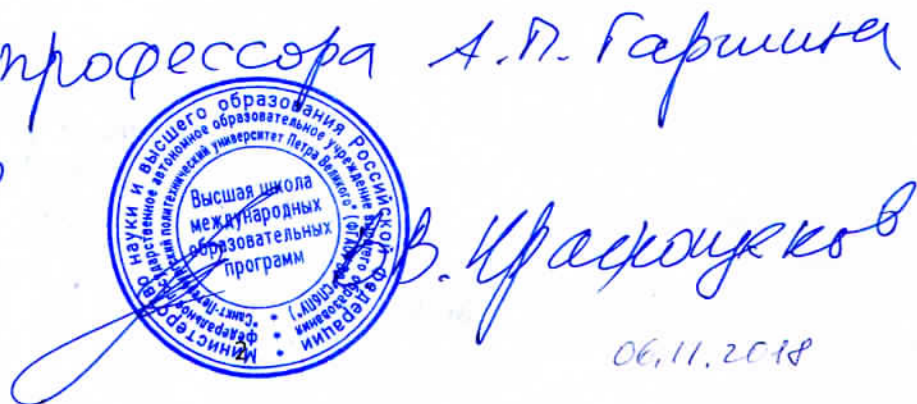 профессора А.П. Гаршина
МИНИСТЕРСТВО НАУКИ И ВЫСШЕГО ОБРАЗОВАНИЯ РОССИЙСКОЙ ФЕДЕРАЦИИ
Федеральное государственное автономное образовательное учреждение высшего образования
"Санкт-Петербургский политехнический университет Петра Великого" (ФГАОУ ВО "СПбПУ")
Высшая школа
международных
образовательных
программ
2
В. Краснощеков
06.11.2018